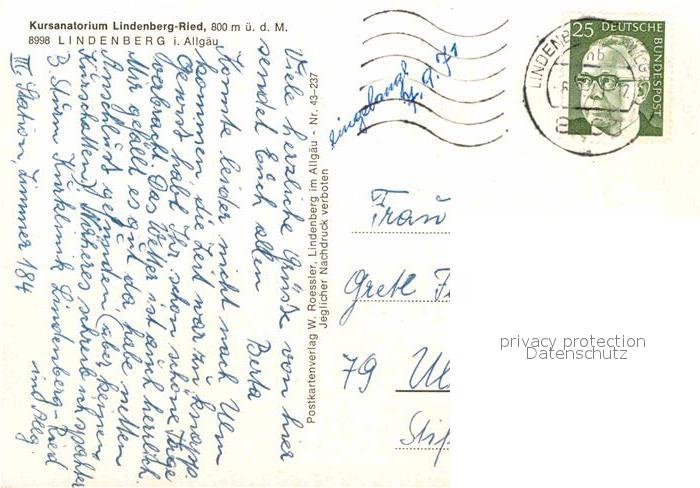 Kursanatorium Lindenberg-Ried, 800 m ü. d. M.
8998 LINDENBERG i. Allgäu
Viele herzliche Grüsse von hier
sendet Euch allen Berta
Konnte leider nicht nach Ulm
kommen, die Zeit war zu knapp.
Gewiss habt Ihr schon schöne Tage
verbracht. Das Wetter ist auch herrlich.
Mir gefällt es gut da, habe netten
Anschluss gefunden, (aber keinen
Kurschatten) Näheres schreib ich später
B. Sturm Kurklinik Lindenberg-Ried
III. Station, Zimmer 184 im Allg.
Postkartenverlag W. Roessler, Lindenberg im Allgäu - Nr. 43-237
Jeglicher Nachdruck verboten
eingelangt
9. 71
LINDENB
25 DEUTSCHE
BUNDESPOST
Frau
Gretl
79 Ul
privacy protection
Datenschutz